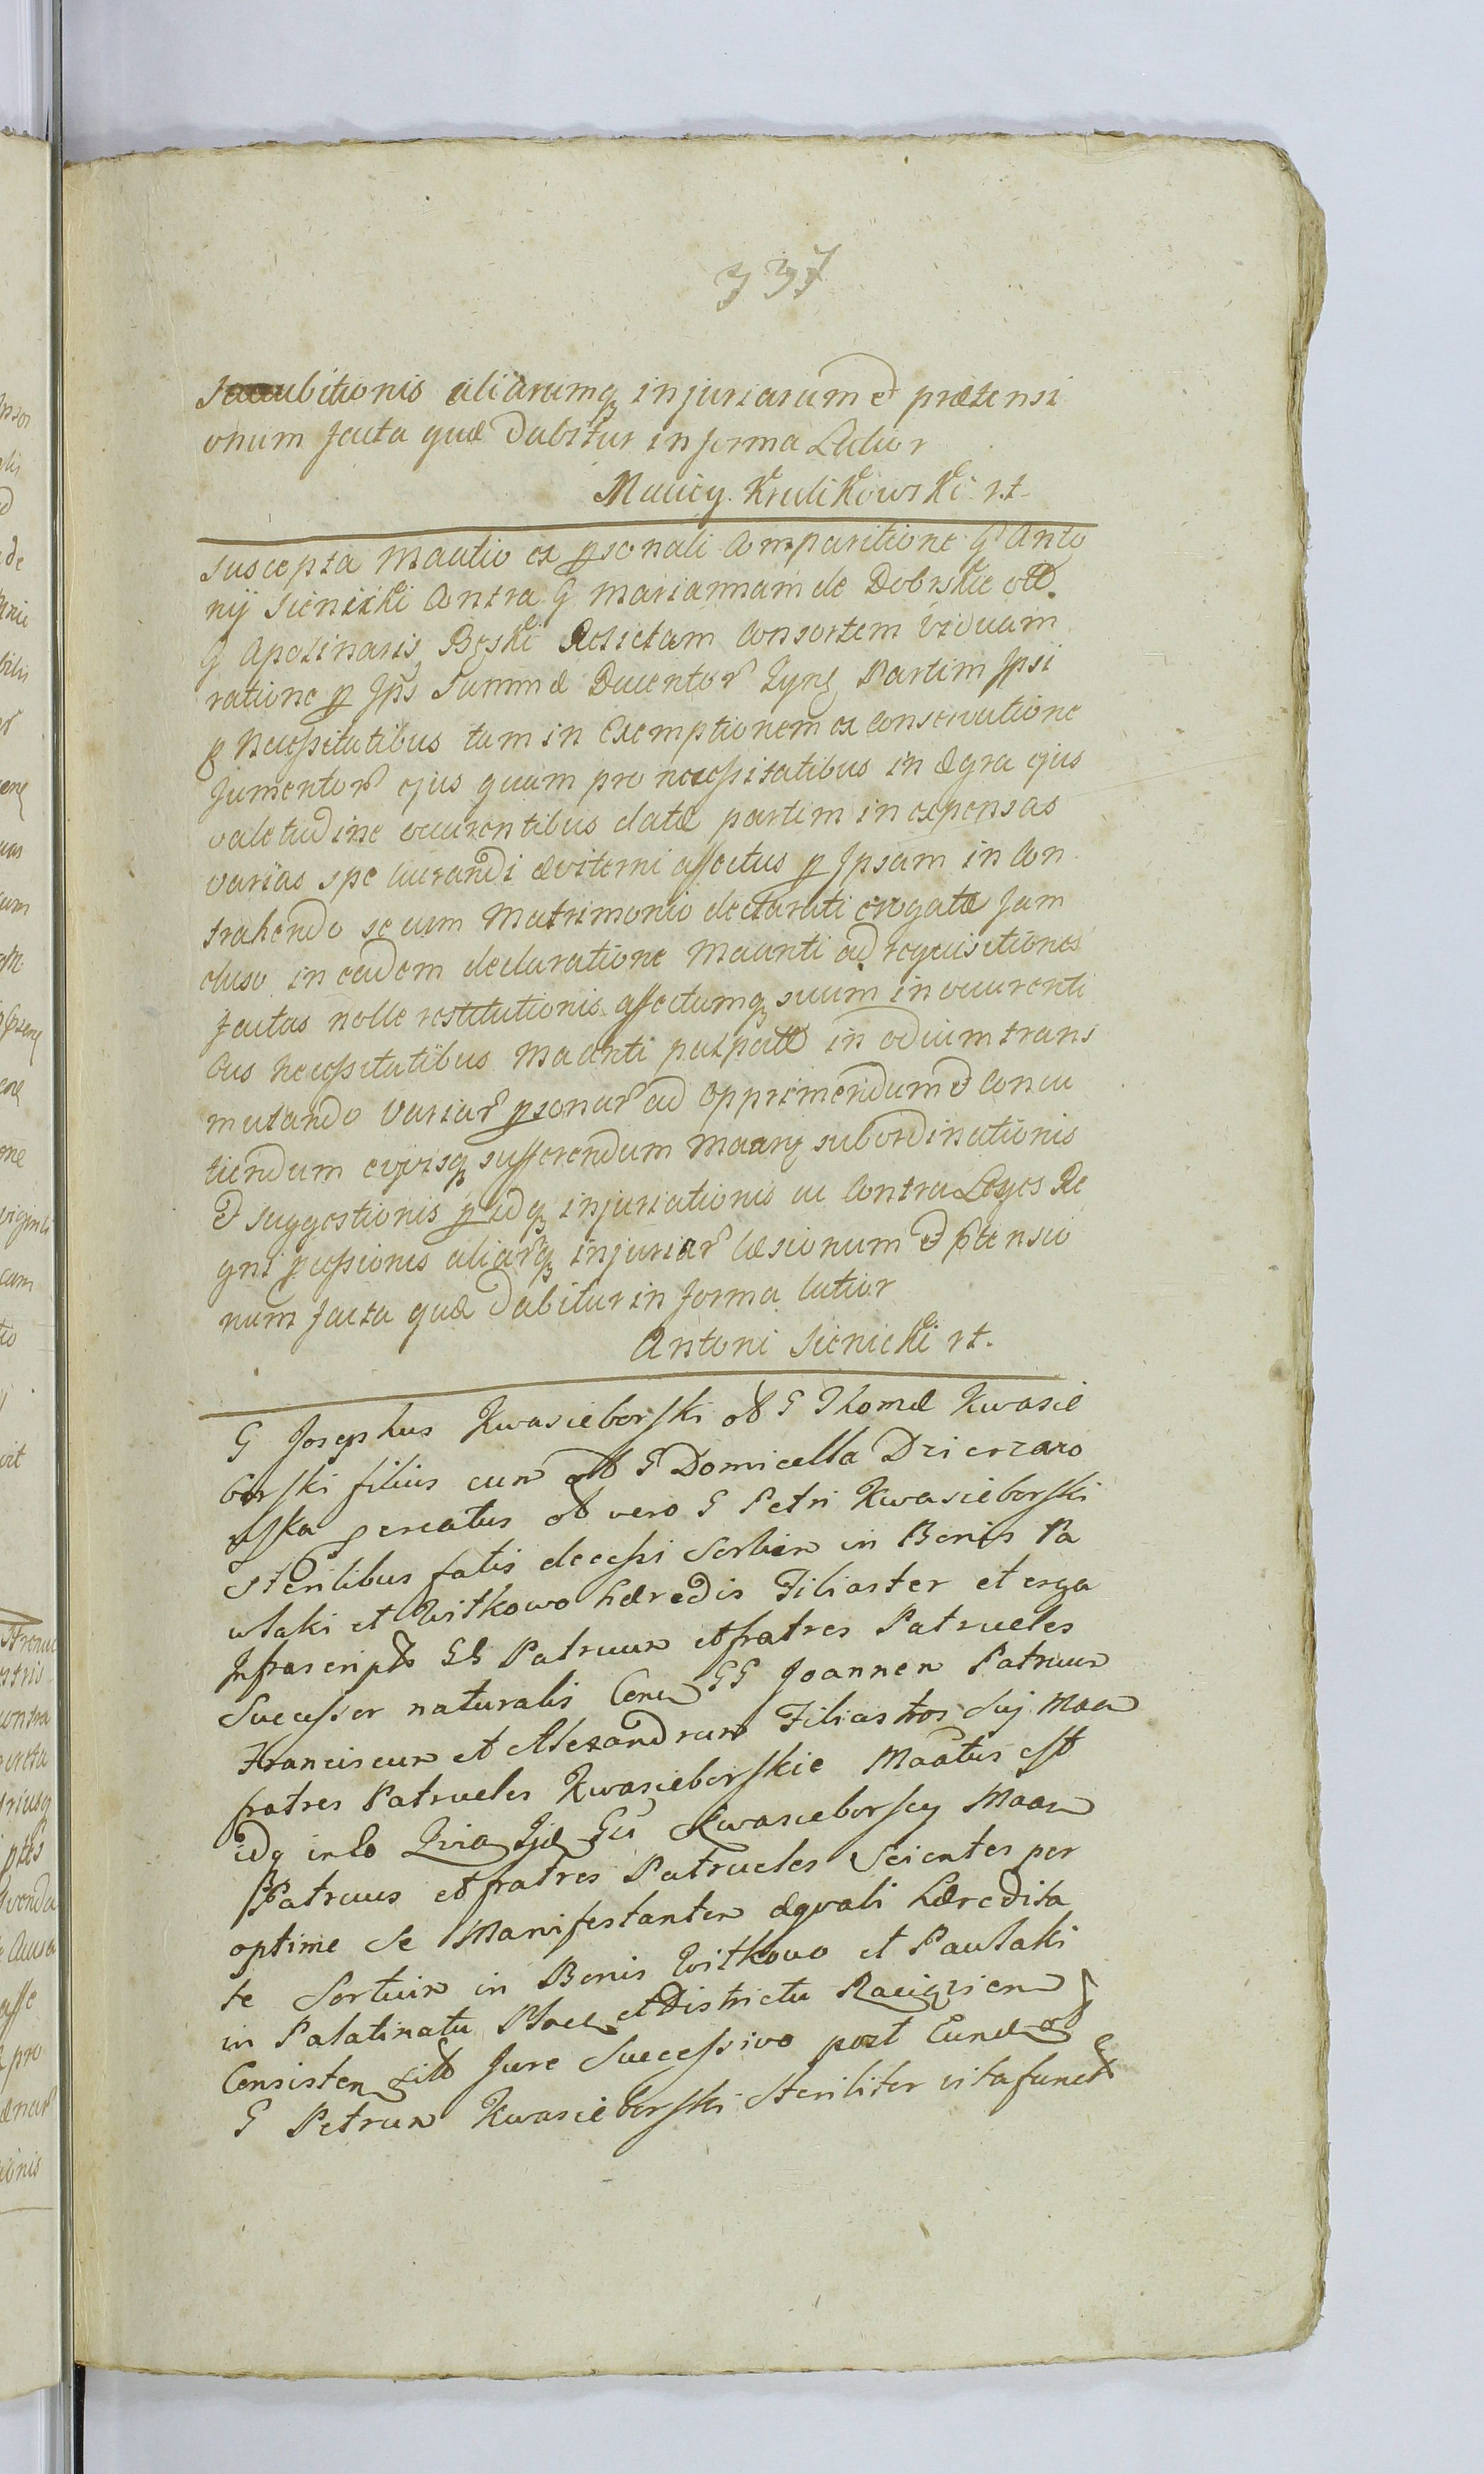 337
ubitionis aliarumq injuriarum et prætensi
onum facta quæ dabitur in forma Latior
Maciey Krulikowski rt
Suscepta Maatio ex psonali Comparitione G Anto
nij Sienicki Contra G Mariannam de Dobrskie olĩ
G Apolinaris Bęski Relictam Consortem Viduam
ratione p Ips Summæ Ducentor Partim Ipsi
p Necessitatibus tam in Exemptionem ex Conservatione
Jumentor ejus quam pro necessitatibus in ægra ejus
valetudine occurentibus datæ partim in expensas
varias spe lucrandi æviterni affectus p Ipsam in Con
trahendo secum Matrimonio declarati erogatæ Jam
eluso in eadem declaratione Maanti ad requisitiones
factas nolle restitutionis affectumq suum in occurenti
bus Necessitatibus Maanti in odium trans
mutando Variar psonar ad opprimendum et Concu
tiendum sufferendum Maanq subordinationis
et suggestionis p idq injuriationis ac Contra Leges Re
gni pcussionis aliarq injuriar læsionum et ptensio
num facta quæ dabitur in forma latior
Antoni Sienicki rt.
G Josephus Kwasieborski olĩ G Thomæ Kwasie
borski filius cum olĩ G Domicella Dzierzano
wska pereatus olĩ vero G Petri Kwasieborski
Sterilibus fatis decessi Sortien in Bonis Pa
wlaki et Witkowo hæredis Filiaster et erga
Infrascriptos GG Patruum et fratres Patrueles
Successor naturalis Con GG Joannem Patruum
Franciscum et Alexandrum Filiastros Suj Maan
fratres Patrueles Kwasieborskie Maatus est
idq in eo Quia Kwasieborscy Maan
Patruus et fratres Patrueles Scientes per
optime Se Manifestantem æquali hæredita
te Sortum in Bonis Witkowo et Pawlaki
in Palatinatu Ploce et Districtu Raciązien
Consisten Jure Successivo post Eund olĩ
G Petrum Kwasieborski Steriliter vita funct